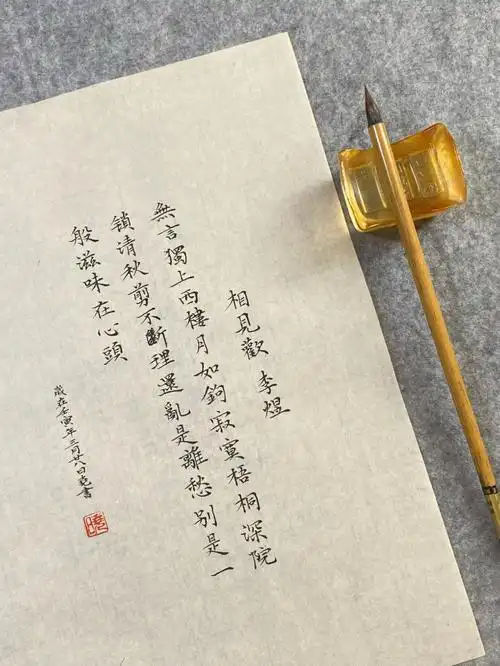 相見歡 李煜
無言獨上西樓月如鉤寂寞梧桐深院
鎖清秋剪不斷理還亂是離愁別是一
般滋味在心頭
歲在壬寅年三月廿八日堯書